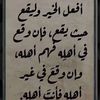 أفعل الخير وليقع
حيث يقع، فإن وقع
في أهله فهم أهله،
وإن وقع في غير
أهله فأنت أهله.